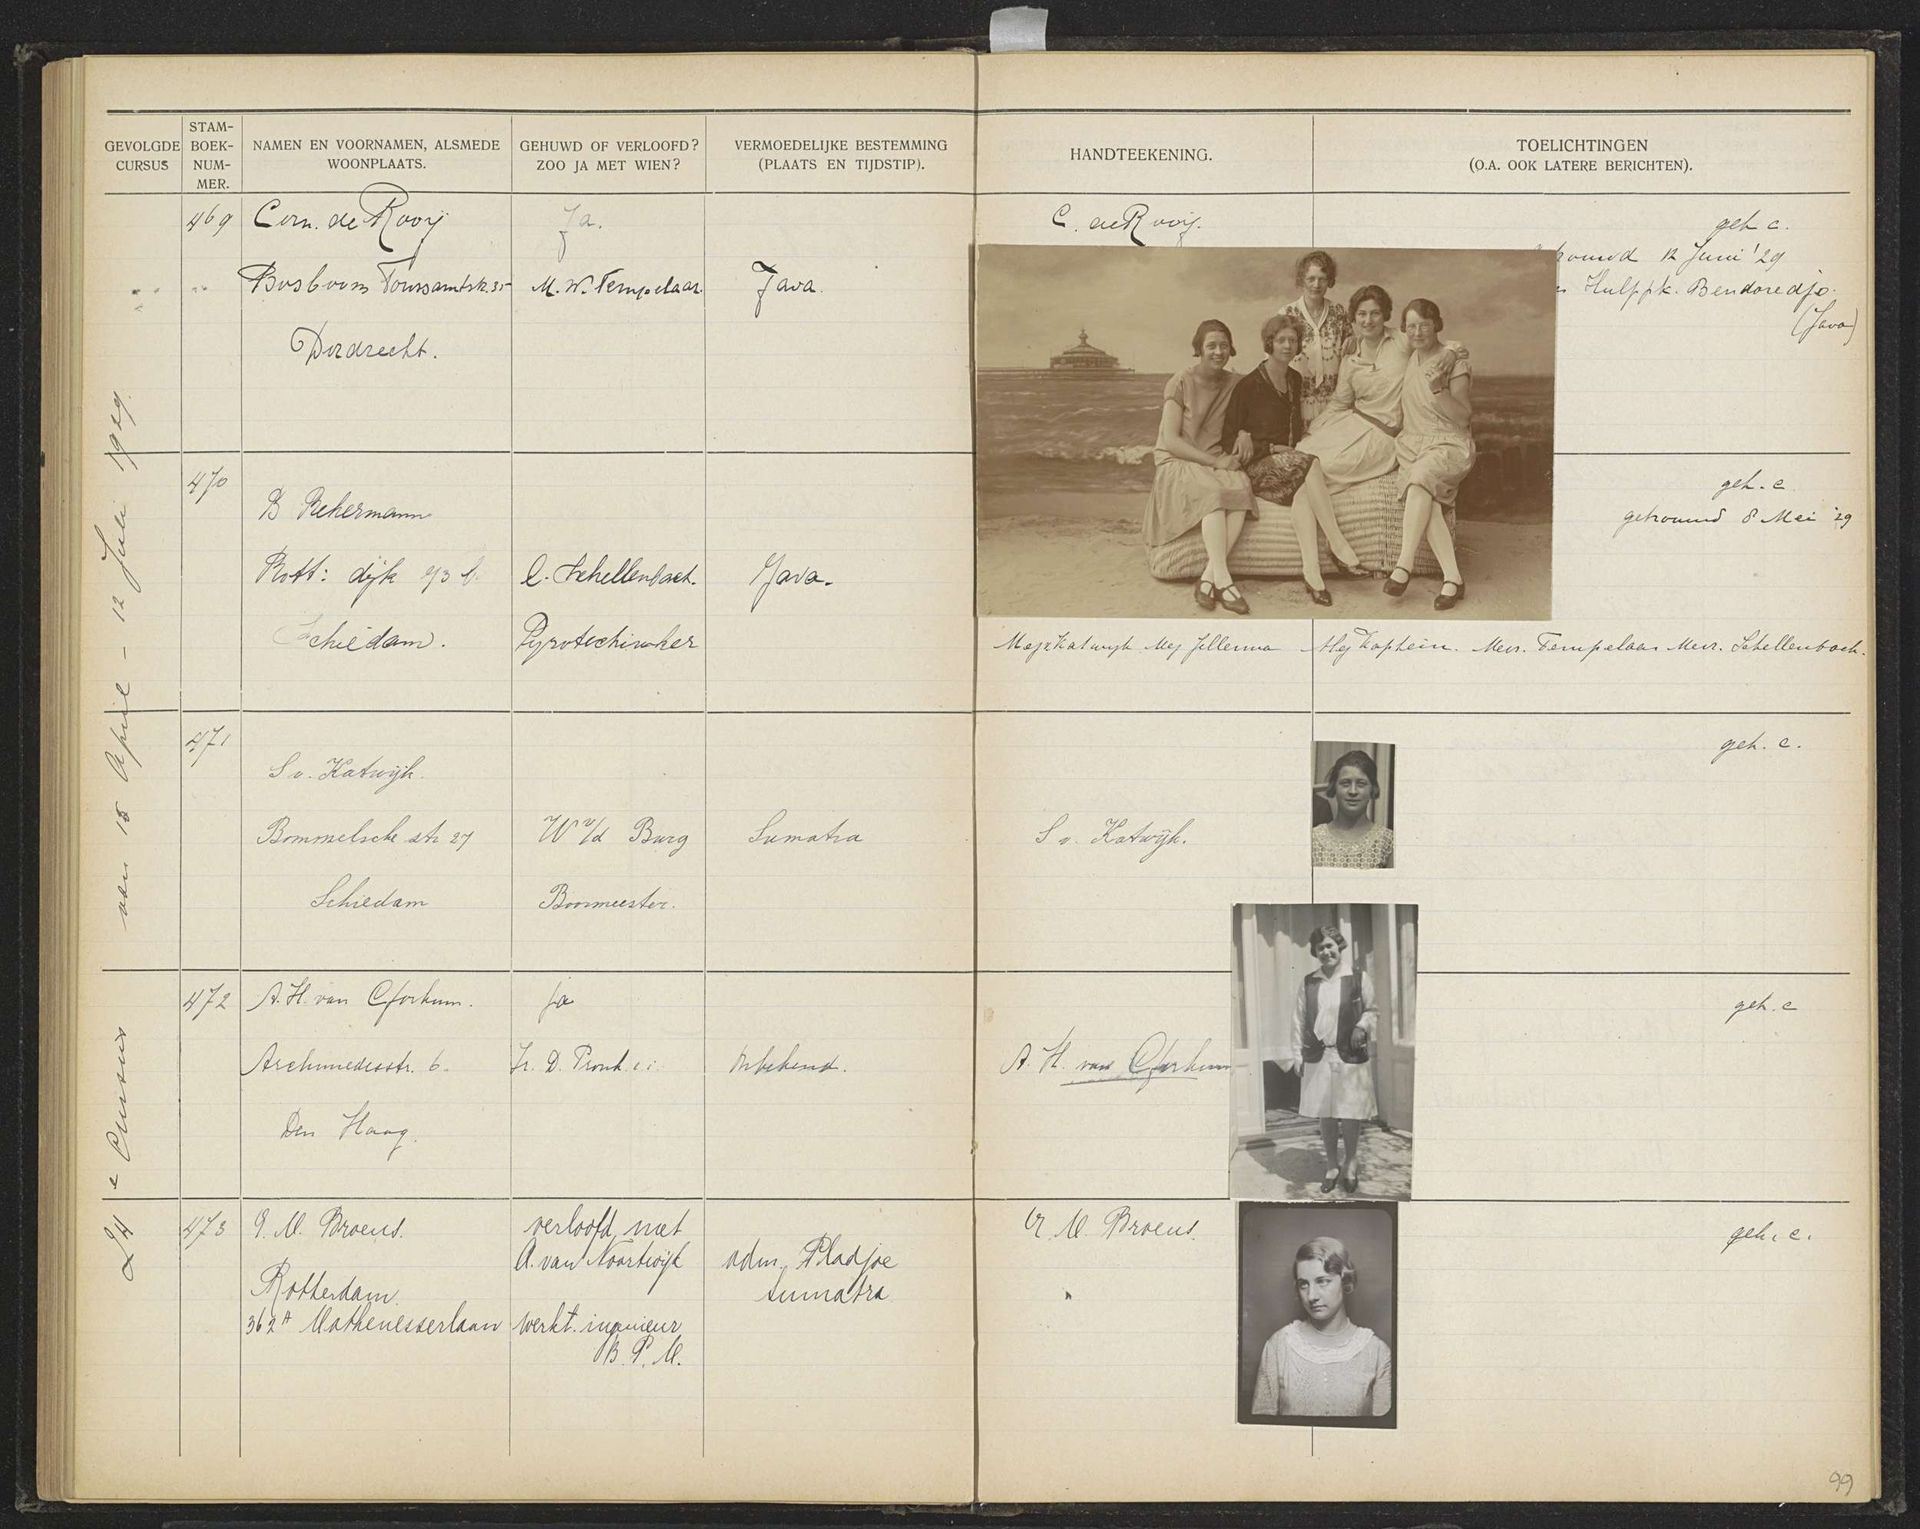 GEVOLGDE CURSUS
STAM-BOEK-NUM-MER.
NAMEN EN VOORNAMEN, ALSMEDE WOONPLAATS.
GEHUWD OF VERLOOFD? ZOO JA MET WIEN?
VERMOEDELIJKE BESTEMMING (PLAATS EN TIJDSTIP).
HANDTEEKENING.
TOELICHTINGEN (O.A. OOK LATERE BERICHTEN).
24e Cursus van 15 April - 12 Juli 1929.
469 Corn. de Rooij Ja. C. de Rooij. geh c.
Bosboom Toussaintstr. M. W. Tempelaar. Java. 12 Juni '29
Hulppk. Bendoredjo.
Dordrecht. (Java)
470 geh. c
B getrouwd 8 Mei '29
Rott: dijk C. Schellenbach. Java.
Schiedam.
Mej v Katwijk Mej Jellema Mej Kaptein. Mevr. Tempelaar Mevr. Schellenbach.
471 geh. c.
S v. Katwijk.
Bommelsche str 27 W v/d Burg Sumatra S v. Katwijk.
Schiedam Boormeester.
472 A. H. van Gorkum. Ja geh. c
Archimedesstr. 6. Ir. D. Pronk c.i. Onbekend. A. H. van Gorkum
Den Haag.
473 G. M. Broens. verloofd met G. M. Broens. geh. c.
A. van Noortwijk Pladjoe
Rotterdam. Sumatra
362A Mathenesserlaan werkt. ingenieur
B. P. M.
99